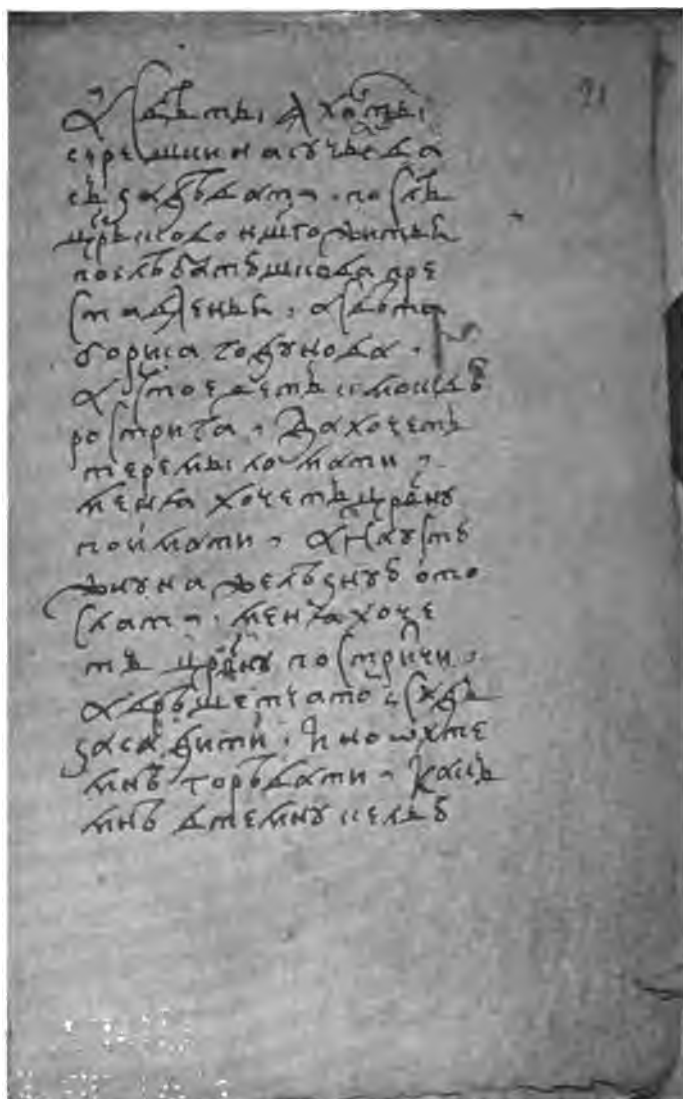 А свѣты, яхонты,
серешки на сучье ва
съ задѣвати. послѣ
црьсково ншго житья
послѣ батюшкова пре
ставленья. а свѣта
бориса годунова.
а што едетъ к москвѣ
рострига. да хочетъ
теремы ломати.
меня хочетъ црвну
поимати. а на устю
жну на желѣзную ото
слати. меня хоче
тъ црвну постричи.
а в решетчатои садъ
засадити. ино ѡхте
мнѣ горевати. какъ
мнѣ в темну келью